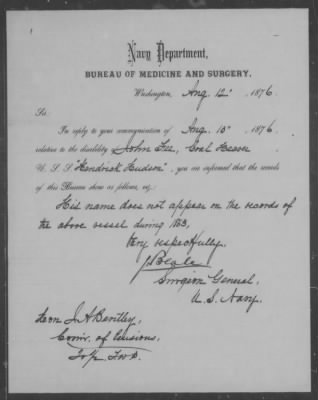 Navy Department,
BUREAU OF MEDICINE AND SURGERY,
Washington, Aug. 12", 1876
Sir:
In reply to your communication of Aug. 10", 1876
relative to the disability John Coal Heaver
U.S.S. "Hendrick Hudson", you are informed that the records
of this Bureau show as follows, viz.:
His name does not appear on the records of
the above vessel during 1863,
Very respectfully,
J Beale
Surgeon General,
U.S. Navy.
Hon J.A. Bentley,
Comr. of Pensions,